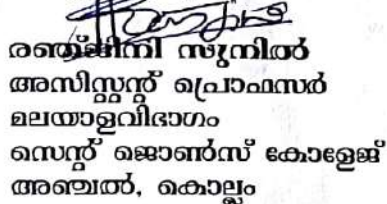 രഞ്ജിനി സുനിൽ
അസിസ്റ്റന്റ് പ്രൊഫസർ
മലയാളവിഭാഗം
സെന്റ് ജൊൺസ് കോളേജ്
അഞ്ചൽ, കൊല്ലം